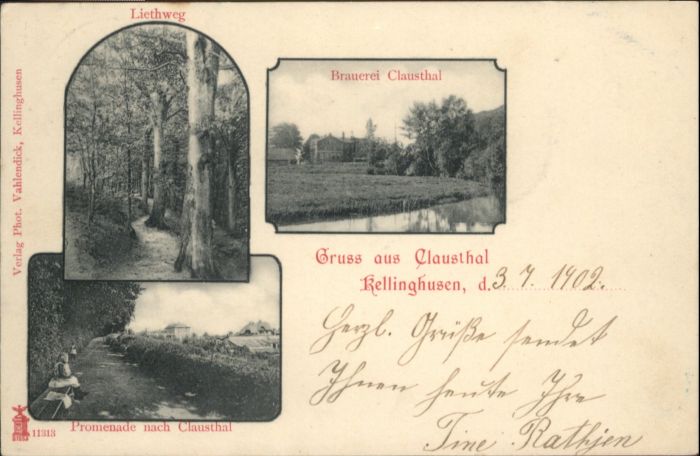 Liethweg
Brauerei Clausthal
Verlag Phot. Vahlendick, Kellinghusen
Gruss aus Clausthal
Kellinghusen, d. 3. 7. 1902.
Herzl. Grüße sendet
Ihnen heute Ihre
Tine Rathjen
Promenade nach Clausthal
11313